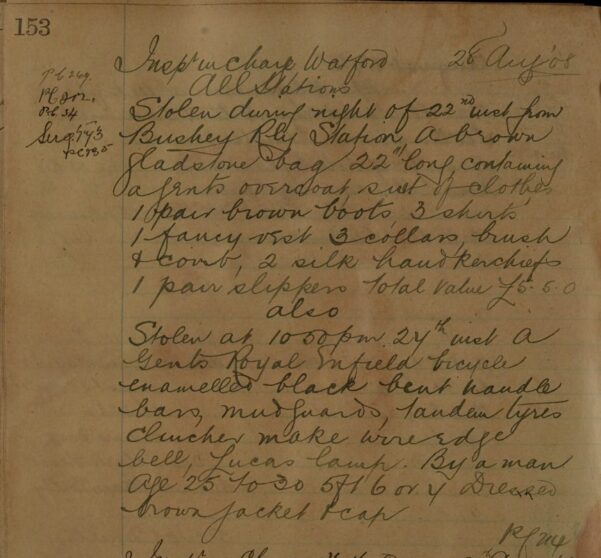 153
Insp in charge Watford 26 Aug '08
All Stations
PC 269.
PC 34
Serg 773
PC 785
Stolen during night of 22nd inst from
Bushey Rly Station, A brown
gladstone bag 22" long containing
agents overcoat, suit of clothes
1 pair brown boots, 3 shirts,
1 fancy vest 3 collars, brush
& comb, 2 silk handkerchiefs
1 pair slippers Total Value £5. 5. 0
also
Stolen at 10 50 pm 24th inst A
Gents Royal Enfield bicycle
enamelled black bent handle
bars, mudguards, Tandem tyres
Clincher make wire edge
bell, Lucas lamp. By a man
age 25 to 30 5ft 6 or 7 Dressed
brown jacket & cap